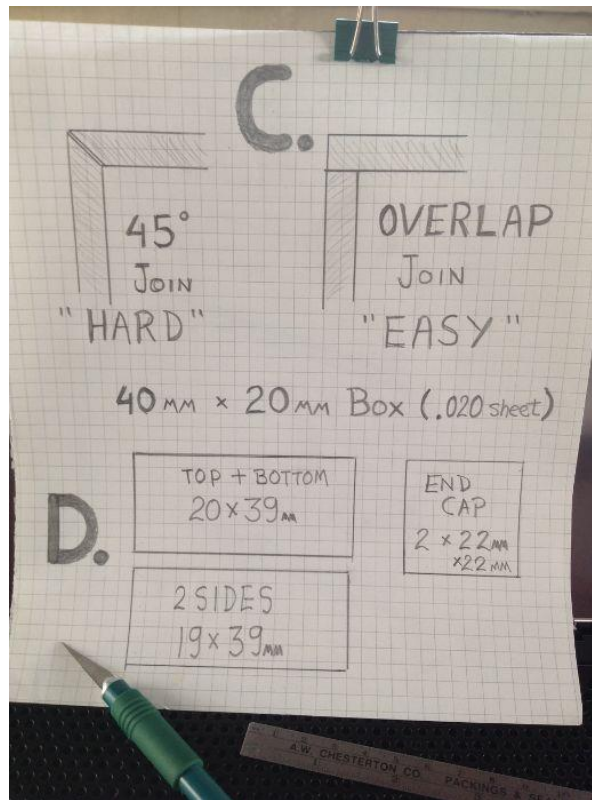 C.
45°
JOIN
"HARD"
OVERLAP
JOIN
"EASY"
40MM × 20MM BOX (.020 sheet)
D.
TOP + BOTTOM
20×39MM
END
CAP
2 × 22MM
×22MM
2 SIDES
19×39MM
A.W. CHESTERTON CO. PACKINGS &